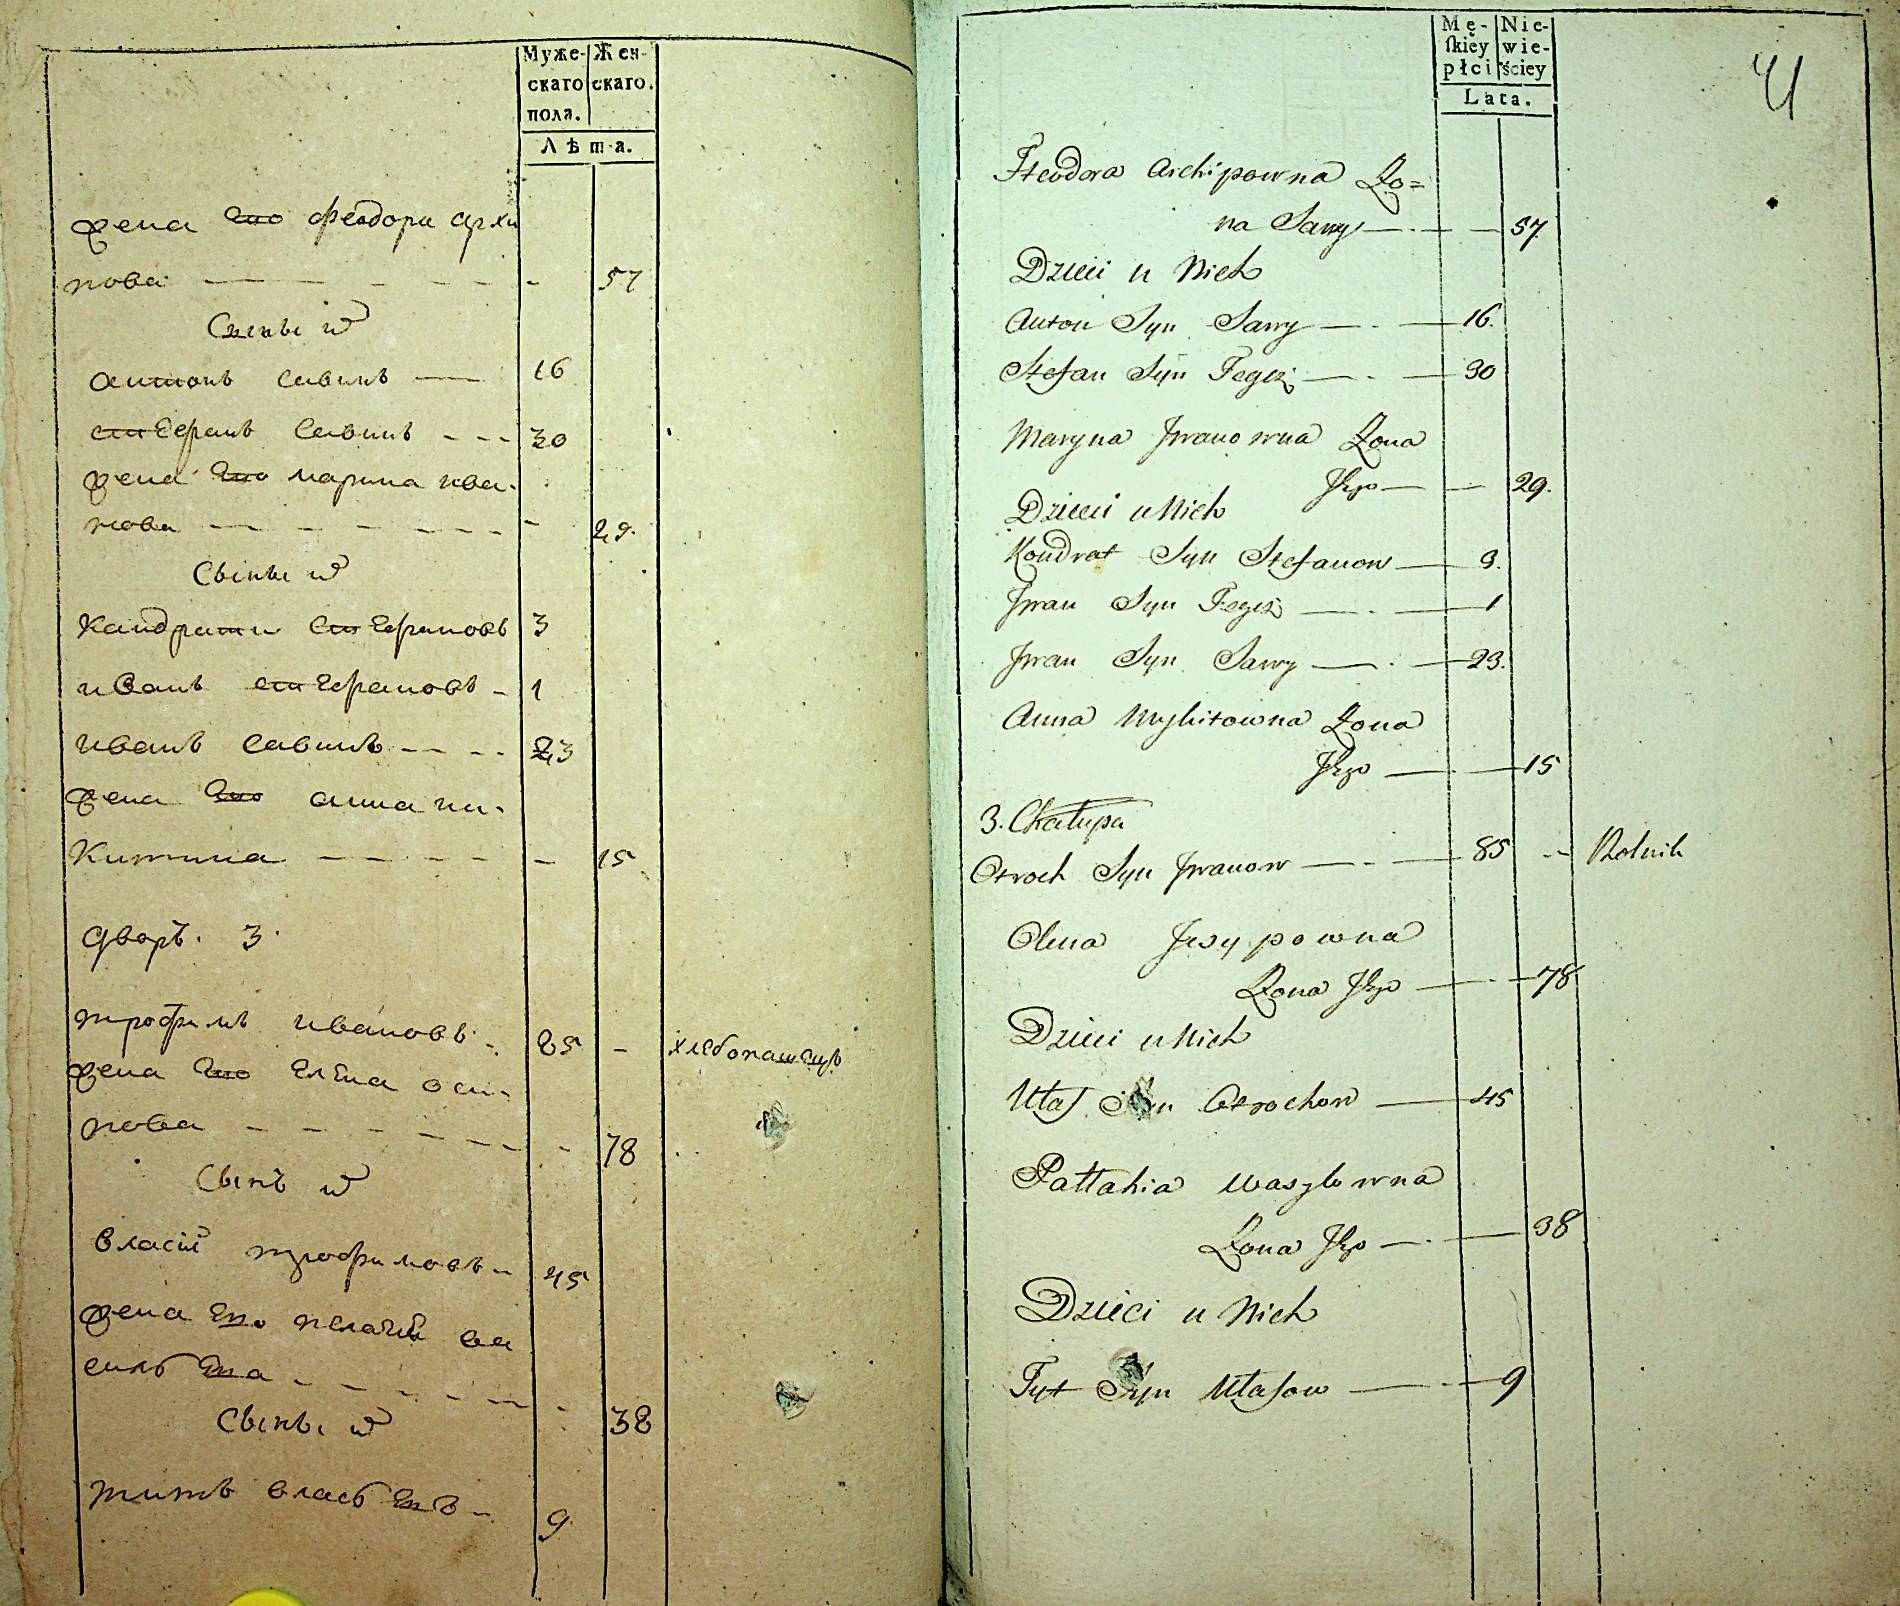 Муже-
скаго
пола.
Жен-
скаго.
Лѣта.
жена его феодора архи
пова - - - - - - 57
Сыны и҃х
антонъ савинъ — 16
стефанъ савинъ - - - 30
жена его марина ива-
нова - - - - - - 29.
Сыны и҃х
Кандрати стефановъ 3
иванъ стефановъ - 1
иванъ савинъ - - - 23
жена его анна ни-
китина - - - - - 15
дворъ. 3.
трофимъ ивановъ - 85 - хлебопашецъ
жена его елена оси-
пова - - - - - - 78
Сынъ и҃х
Власій трофимовъ - 45
жена его пелагия ва
сильева - - - - - - 38
Сыны и҃х
титъ власьевъ - 9
Mę-
ſkiey
płci
Nie-
wie-
ściey
Lata.
41
Fteodora Archipowna Żo=
na Sawy — 57.
Dzieci u Nich
Anton Syn Sawy — 16.
Stefan Syn Tegoż — 30
Maryna Jwanowna Żona
Jego — 29.
Dzieci u Nich
Kondrat Syn Stefanow — 3.
Jwan Syn Tegoż — 1
Jwan Syn Sawy — 23.
Anna Mykitowna Żona
Jego — 15
3. Chałupa
Otroch Syn Jwanow — 85 -- Rolnik
Olena Jwsypowna
Żona Jego — 78
Dzieci u Nich
Ułas Syn Otrochow — 45
Pałłahia Wasylowna
Żona Jego — 38
Dzieci u Nich
Tyt Syn Ułasow — 9